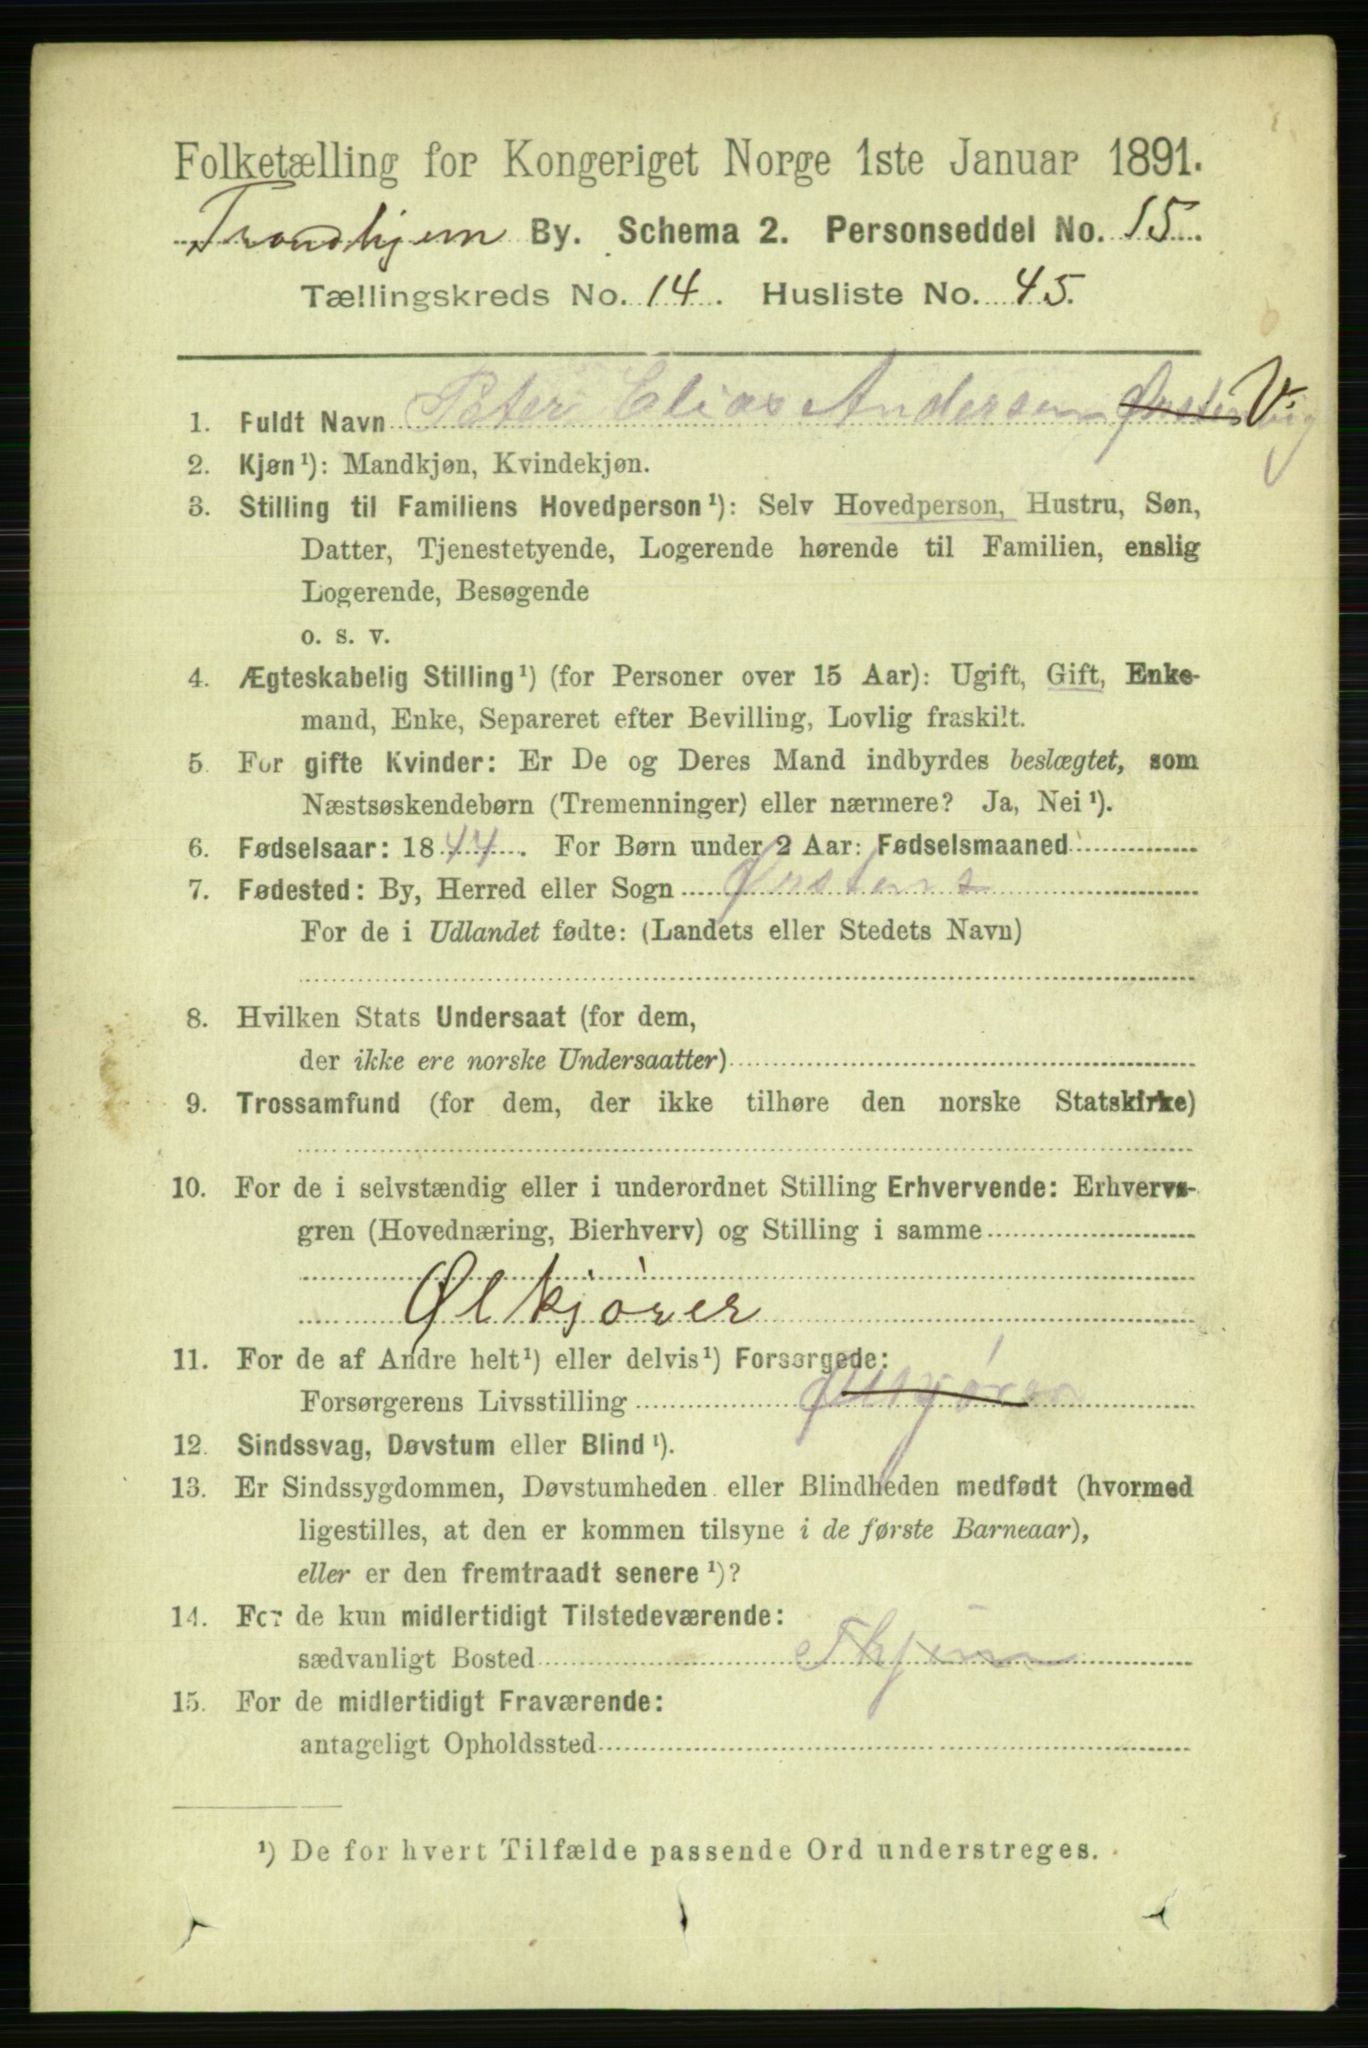 Folketælling for Kongeriget Norge 1ste Januar 1891.
Trondhjem By. Schema 2. Personseddel No. 15.
Tællingskreds No. 14. Husliste No. 45.
1. Fuldt Navn Peter Elias Andersen
2. Kjøn¹): Mandkjøn, Kvindekjøn.
3. Stilling til Familiens Hovedperson¹): Selv Hovedperson, Hustru, Søn,
Datter, Tjenestetyende, Logerende hørende til Familien, enslig
Logerende, Besøgende
o. s. v.
4. Ægteskabelig Stilling¹) (for Personer over 15 Aar): Ugift, Gift, Enke-
mand, Enke, Separeret efter Bevilling, Lovlig fraskilt.
5. For gifte Kvinder: Er De og Deres Mand indbyrdes beslægtet, som
Næstsøskendebørn (Tremenninger) eller nærmere? Ja, Nei¹).
6. Fødselsaar: 1844. For Børn under 2 Aar: Fødselsmaaned
7. Fødested: By, Herred eller Sogn
For de i Udlandet fødte: (Landets eller Stedets Navn)
8. Hvilken Stats Undersaat (for dem,
der ikke ere norske Undersaatter)
9. Trossamfund (for dem, der ikke tilhøre den norske Statskirke)
10. For de i selvstændig eller i underordnet Stilling Erhvervende: Erhvervs-
gren (Hovednæring, Bierhverv) og Stilling i samme
Ølkjører
11. For de af Andre helt¹) eller delvis¹) Forsørgede:
Forsørgerens Livsstilling
12. Sindssvag, Døvstum eller Blind¹).
13. Er Sindssygdommen, Døvstumheden eller Blindheden medfødt (hvormed
ligestilles, at den er kommen tilsyne i de første Barneaar),
eller er den fremtraadt senere¹)?
14. For de kun midlertidigt Tilstedeværende:
sædvanligt Bosted Thjem
15. For de midlertidigt Fraværende:
antageligt Opholdssted
¹) De for hvert Tilfælde passende Ord understreges.